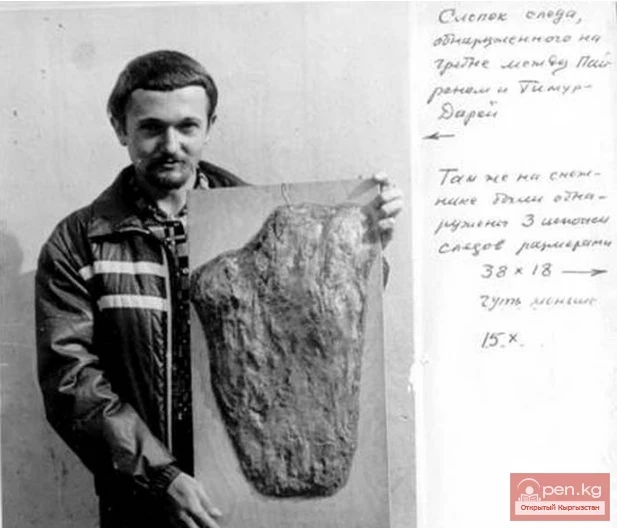 Слепок следа,
обнаруженного на
гребне между Пай-
роном и Тимур-
Дарой
Там же на снеж-
нике были обна-
ружены 3
следов размерами
38 × 18
чуть меньше
15 ×
Open.kg
Открытый Кыргызстан